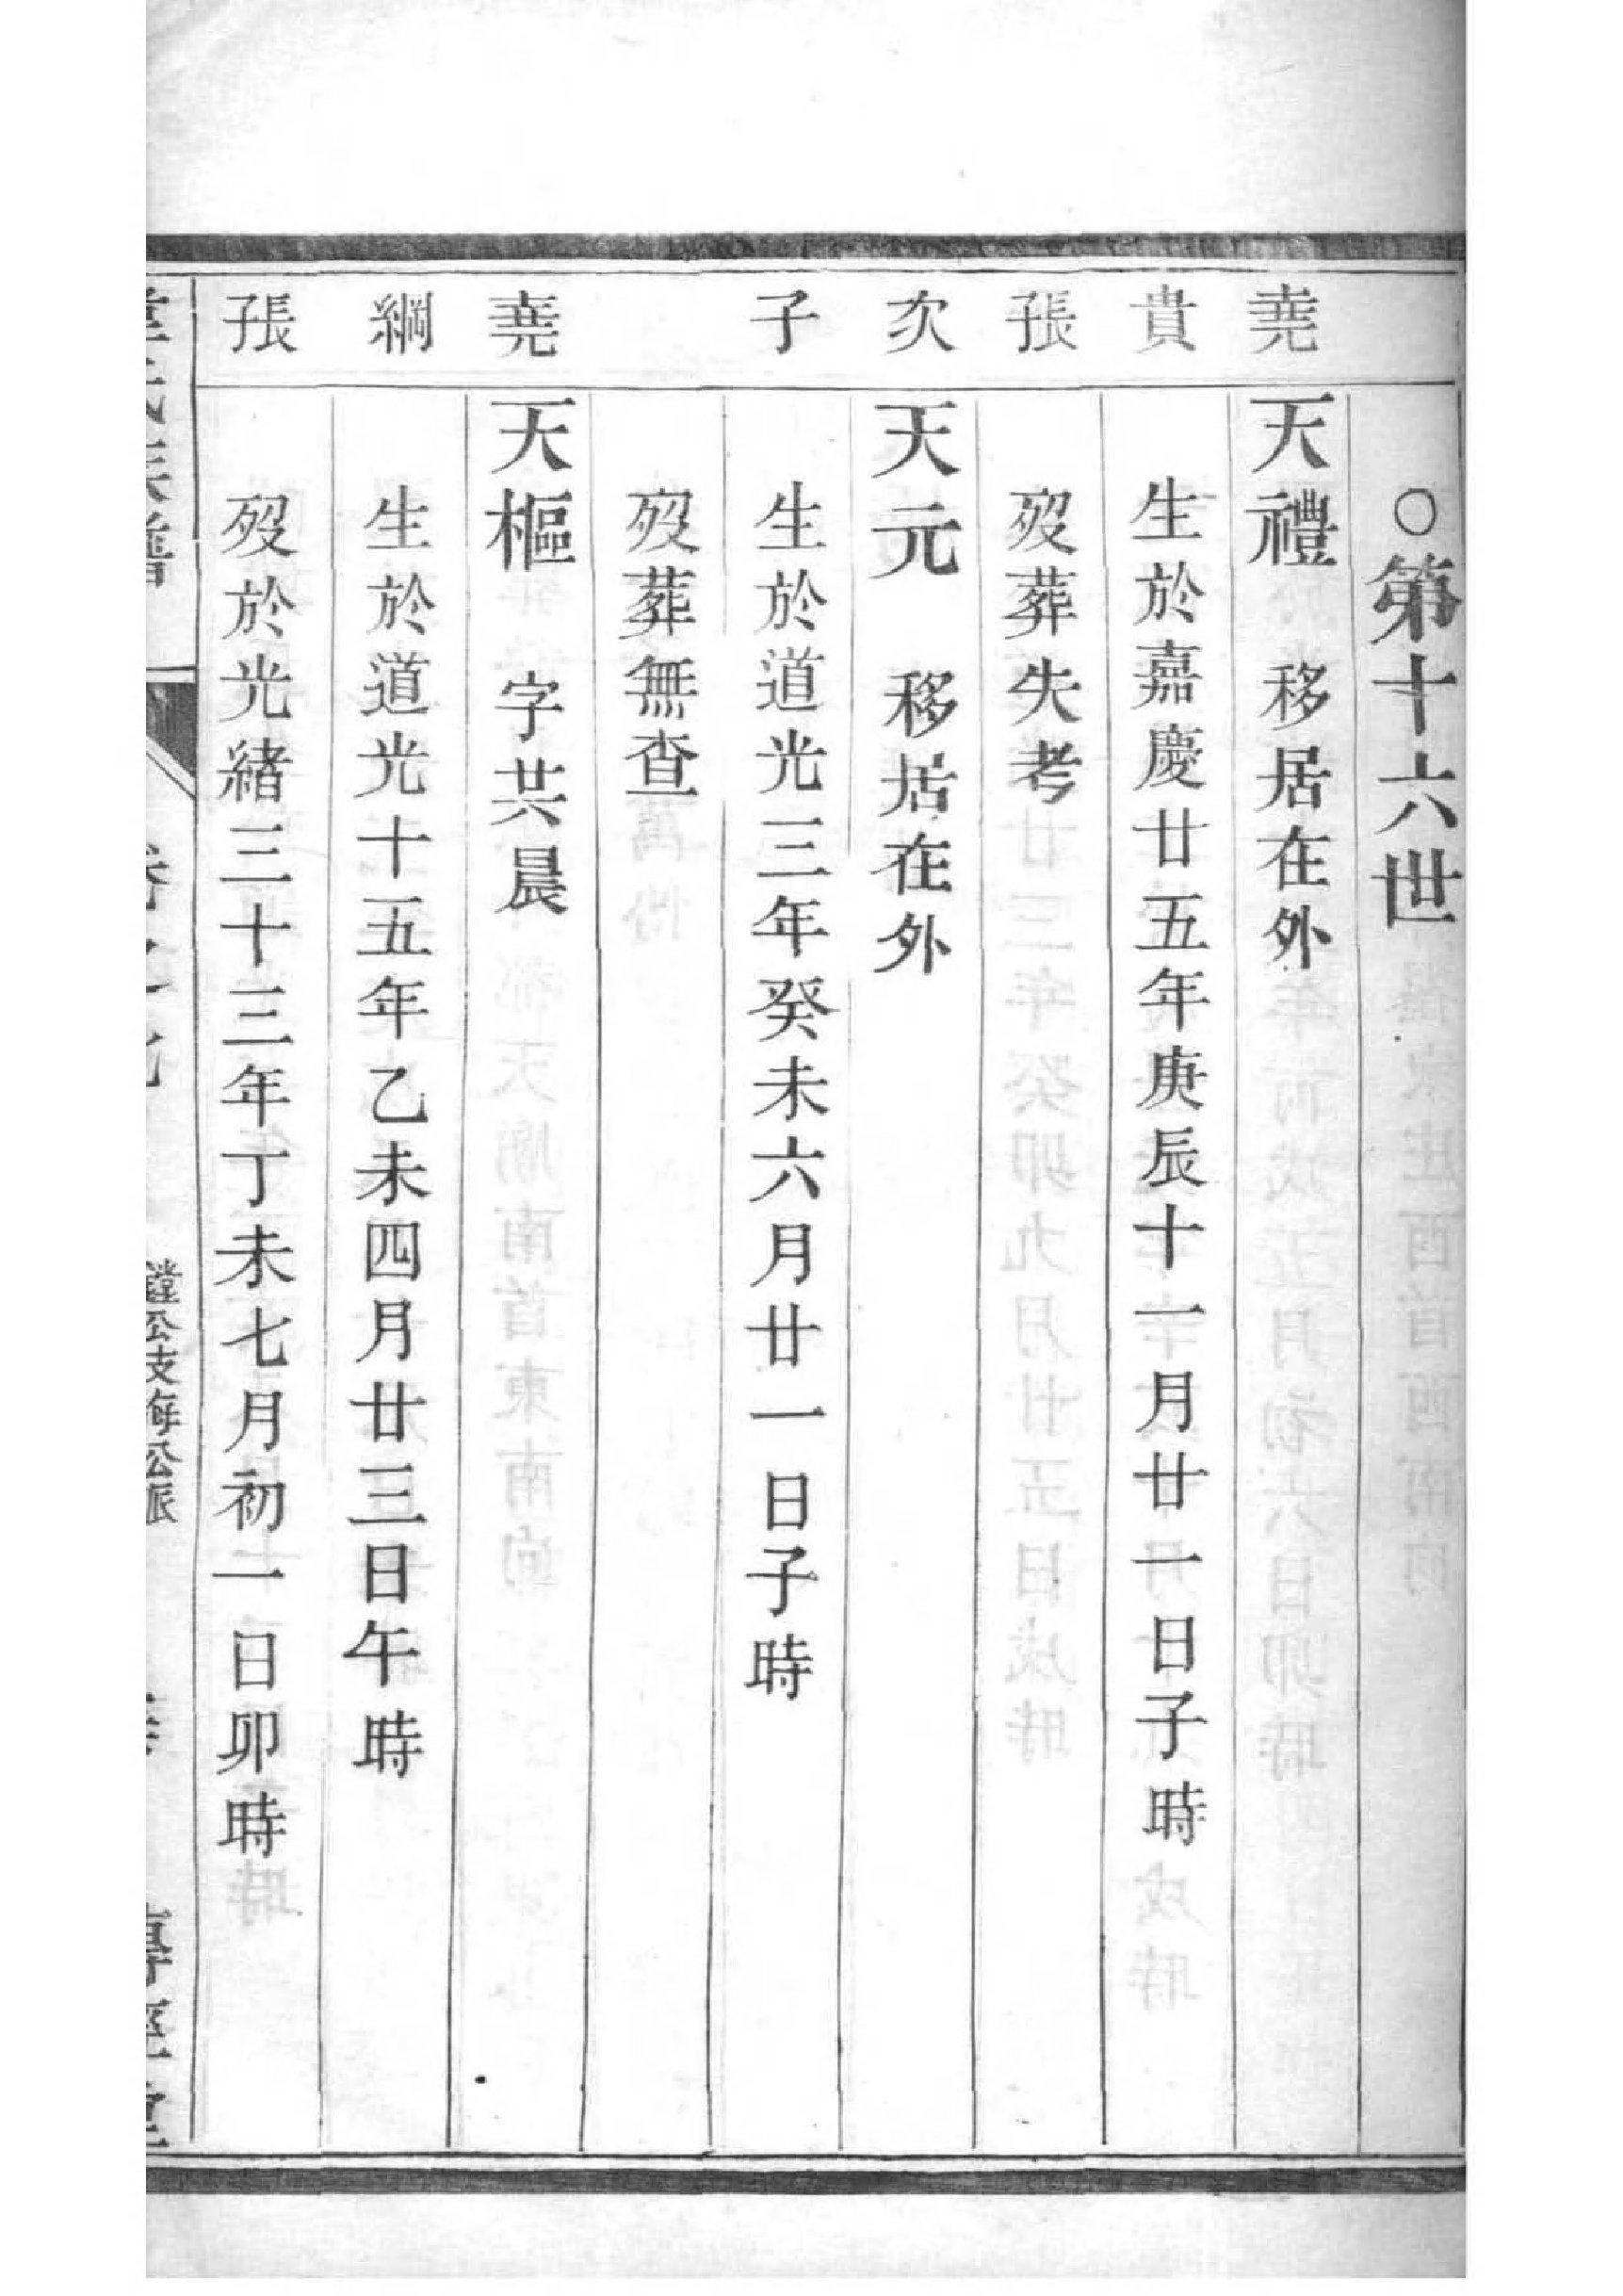 ○第十六世
堯 天禮 移居在外
貴 生於嘉慶廿五年庚辰十一月廿一日子時
張 歿葬失考
次 天元 移居在外
子 生於道光三年癸未六月廿一日子時
歿葬無查
堯 天樞 字共晨
綱 生於道光十五年乙未四月廿三日午時
張 歿於光緒三十三年丁未七月初一日卯時
公支海公派